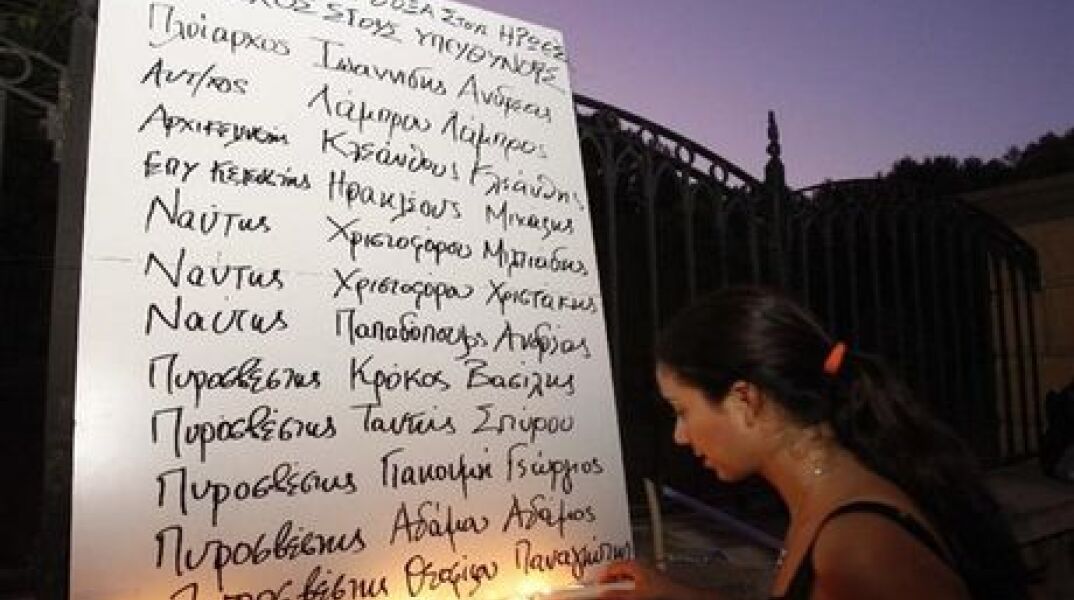 ΔΟΞΑ ΣΤΟΥΣ ΗΡΩΕΣ
ΣΤΟΥΣ ΥΠΕΥΘΥΝΟΥΣ
Πλοίαρχος Ιωαννίδης Ανδρέας
Αντ/χος Λάμπρου Λάμπρος
Αρχικελευστής Κλεάνθους Κλεάνθης
Επικελευστής Ηρακλέους Μιχάλης
Ναύτης Χριστοφόρου Μιλτιάδης
Ναύτης Χριστοφόρου Χριστάκης
Ναύτης Παπαδόπουλος Αντρέας
Πυροσβέστης Κρόκος Βασίλης
Πυροσβέστης Ταντής Σπύρου
Πυροσβέστης Γιακουμή Γεώργιος
Πυροσβέστης Αδάμου Αδάμος
Πυροσβέστης Θεοφίλου Παναγιώτης